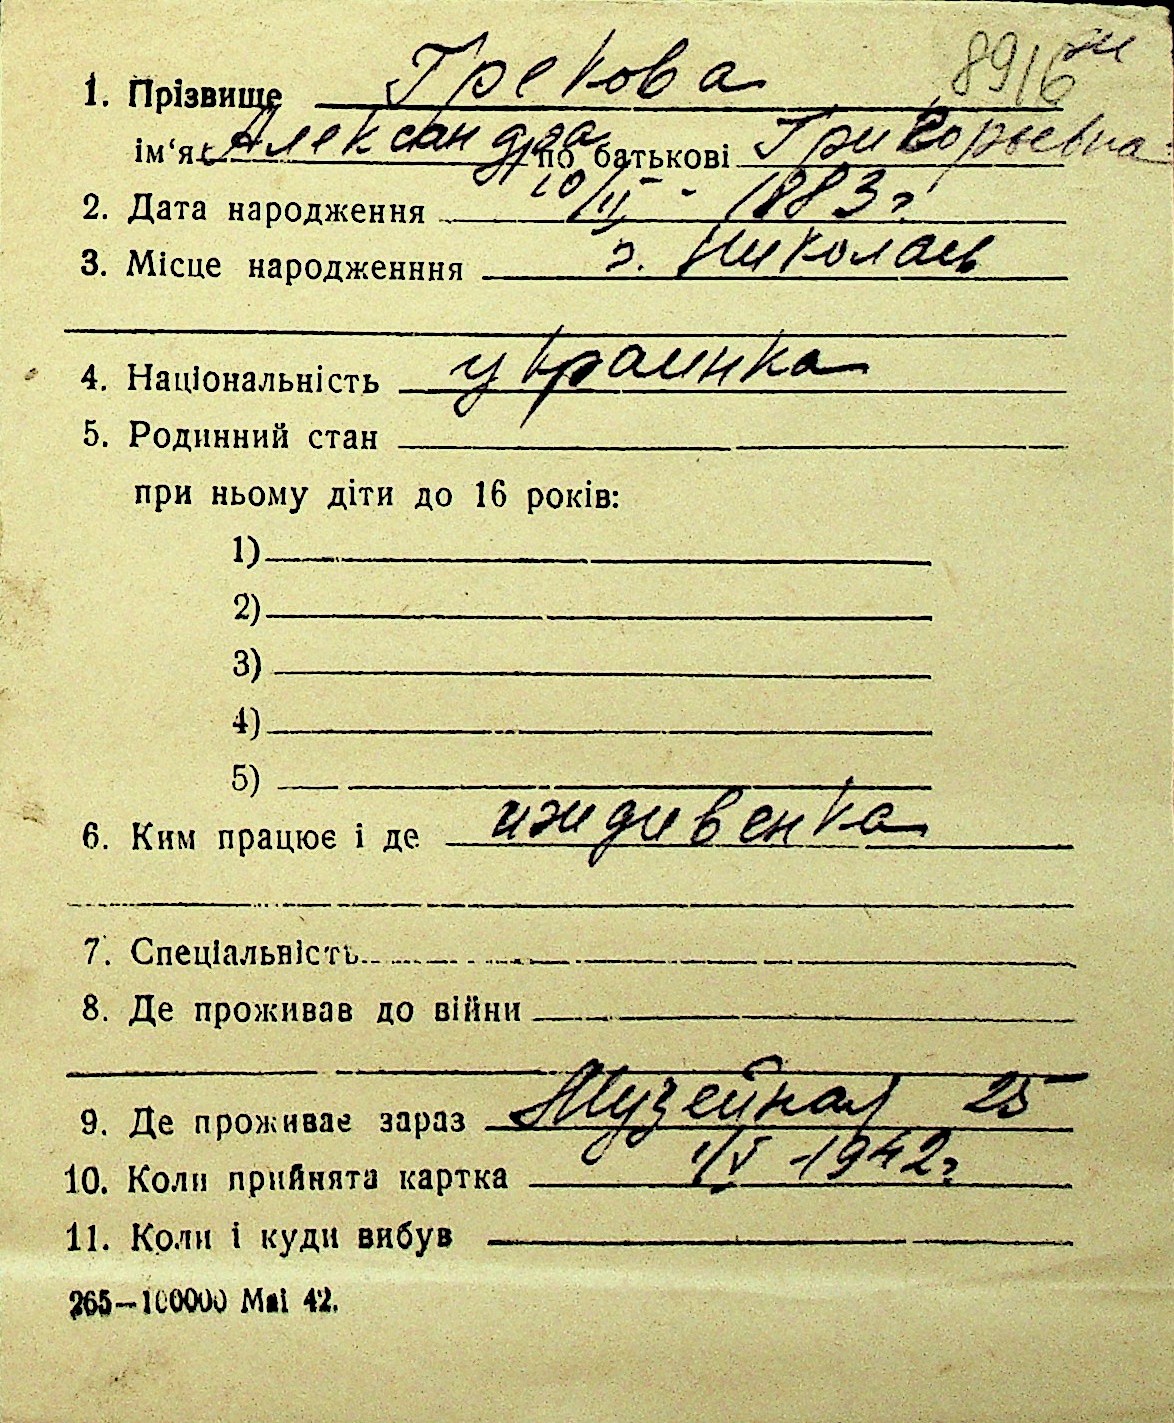 8916
1. Прізвище Грекова
ім‘я Александра по батькові Григорьевна
2. Дата народження 10/II - 1883 г.
3. Місце народженння г. Николаев
4. Національність украинка
5. Родинний стан
при ньому діти до 16 років:
1)
2)
3)
4)
5)
6. Ким працює і де иждивенка
7. Спеціальність
8. Де проживав до війни
9. Де проживає зараз Музейная 25
10. Коли прийнята картка 1/V - 1942 г.
11. Коли і куди вибув
265—100000 Маі 42.